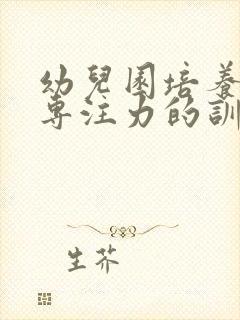 幼兒園培養
專注力的訓
生芥